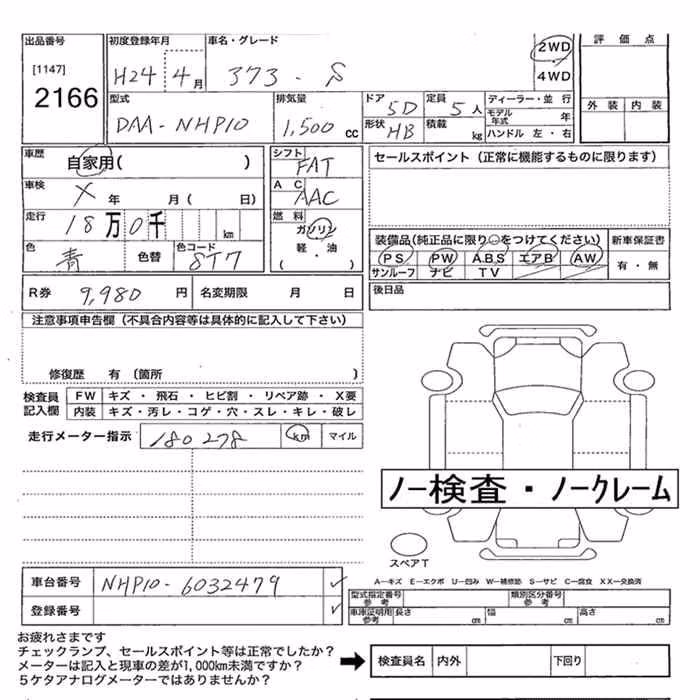 出品番号 初度登録年月 車名・グレード 評価点
[1147] H24 4月 373・S 2WD
2166 4WD
型式 排気量 ドア 5D 定員 5人 ディーラー・並行 外装 内装
DAA-NHP10 1,500cc 形状 HB 積載 kg モデル年式 年
ハンドル 左・右
車歴 自家用( ) シフト FAT セールスポイント(正常に機能するものに限ります)
車検 X 年 月(日) AC AAC
走行 18万0千 km 燃料 ガソリン
軽・油
( ・ )
色 青 色替 色コード 8T7
装備品(純正品に限り○をつけてください) 新車保証書
PS PW A.B.S エアB AW 有・無
サンルーフ ナビ TV
R券 9,980円 名変期限 月 日 後日品
注意事項申告欄(不具合内容等は具体的に記入して下さい)
修復歴 有(箇所 )
検査員記入欄 FW キズ・飛石・ヒビ割・リペア跡・X要
内装 キズ・汚レ・コゲ・穴・スレ・キレ・破レ
走行メーター指示 180278 km マイル
ノー検査・ノークレーム
スペアT
車台番号 NHP10-6032479
登録番号
A―キズ E―エクボ U―凹み W―補修跡 S―サビ C―腐食 XX―交換済
型式指定番号 参考 類別区分番号 参考
車庫証明用 参考 長さ cm 幅 cm 高さ cm
お疲れさまです
チェックランプ、セールスポイント等は正常でしたか?
メーターは記入と現車の差が1,000km未満ですか?
5ケタアナログメーターではありませんか?
検査員名 内外 下回り